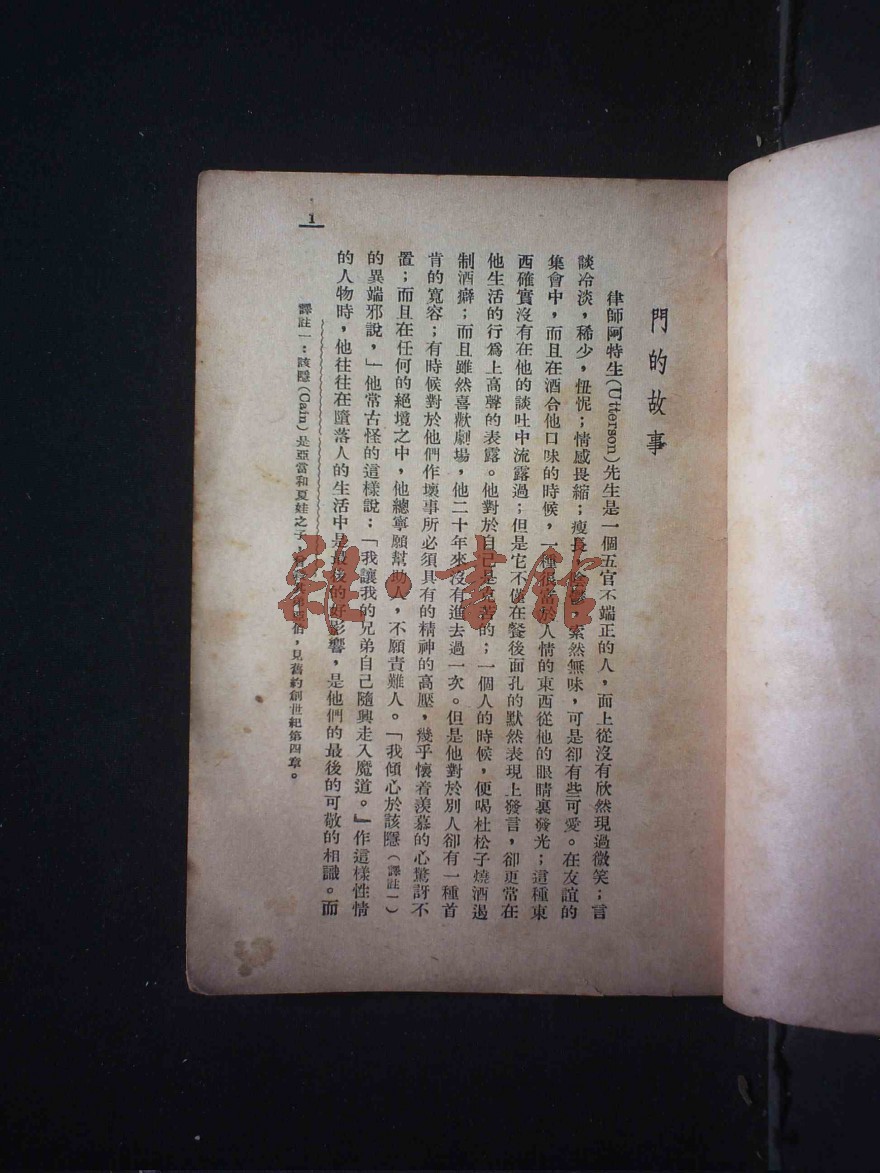 門的故事
律師阿特生(Utterson)先生是一個五官不端正的人，面上從沒有欣然現過微笑；言
談冷淡，稀少，忸怩；情感畏縮；瘦長，陰鬱，索然無味，可是卻有些可愛。在友誼的
集會中，而且在酒合他口味的時候，一種很富於人情的東西從他的眼睛裏發光；這種東
西確實沒有在他的談吐中流露過；但是它不僅在餐後面孔的默然表現上發言，卻更常在
他生活的行爲上高聲的表露。他對於自己是克苦的；一個人的時候，便喝杜松子燒酒遏
制酒癖；而且雖然喜歡劇場，他二十年來沒有進去過一次。但是他對於別人卻有一種首
肯的寬容；有時候對於他們作壞事所必須具有的精神的高壓，幾乎懷着羨慕的心驚訝不
置；而且在任何的絕境之中，他總寧願幫助人，不願責難人。「我傾心於該隱（譯註一）
的異端邪說，」他常古怪的這樣說：「我讓我的兄弟自己隨興走入魔道。』作這樣性情
的人物時，他往往在墮落人的生活中是最後的好影響，是他們的最後的可敬的相識。而
譯註一：該隱(Cain)是亞當和夏娃之子，見舊約創世紀第四章。
1